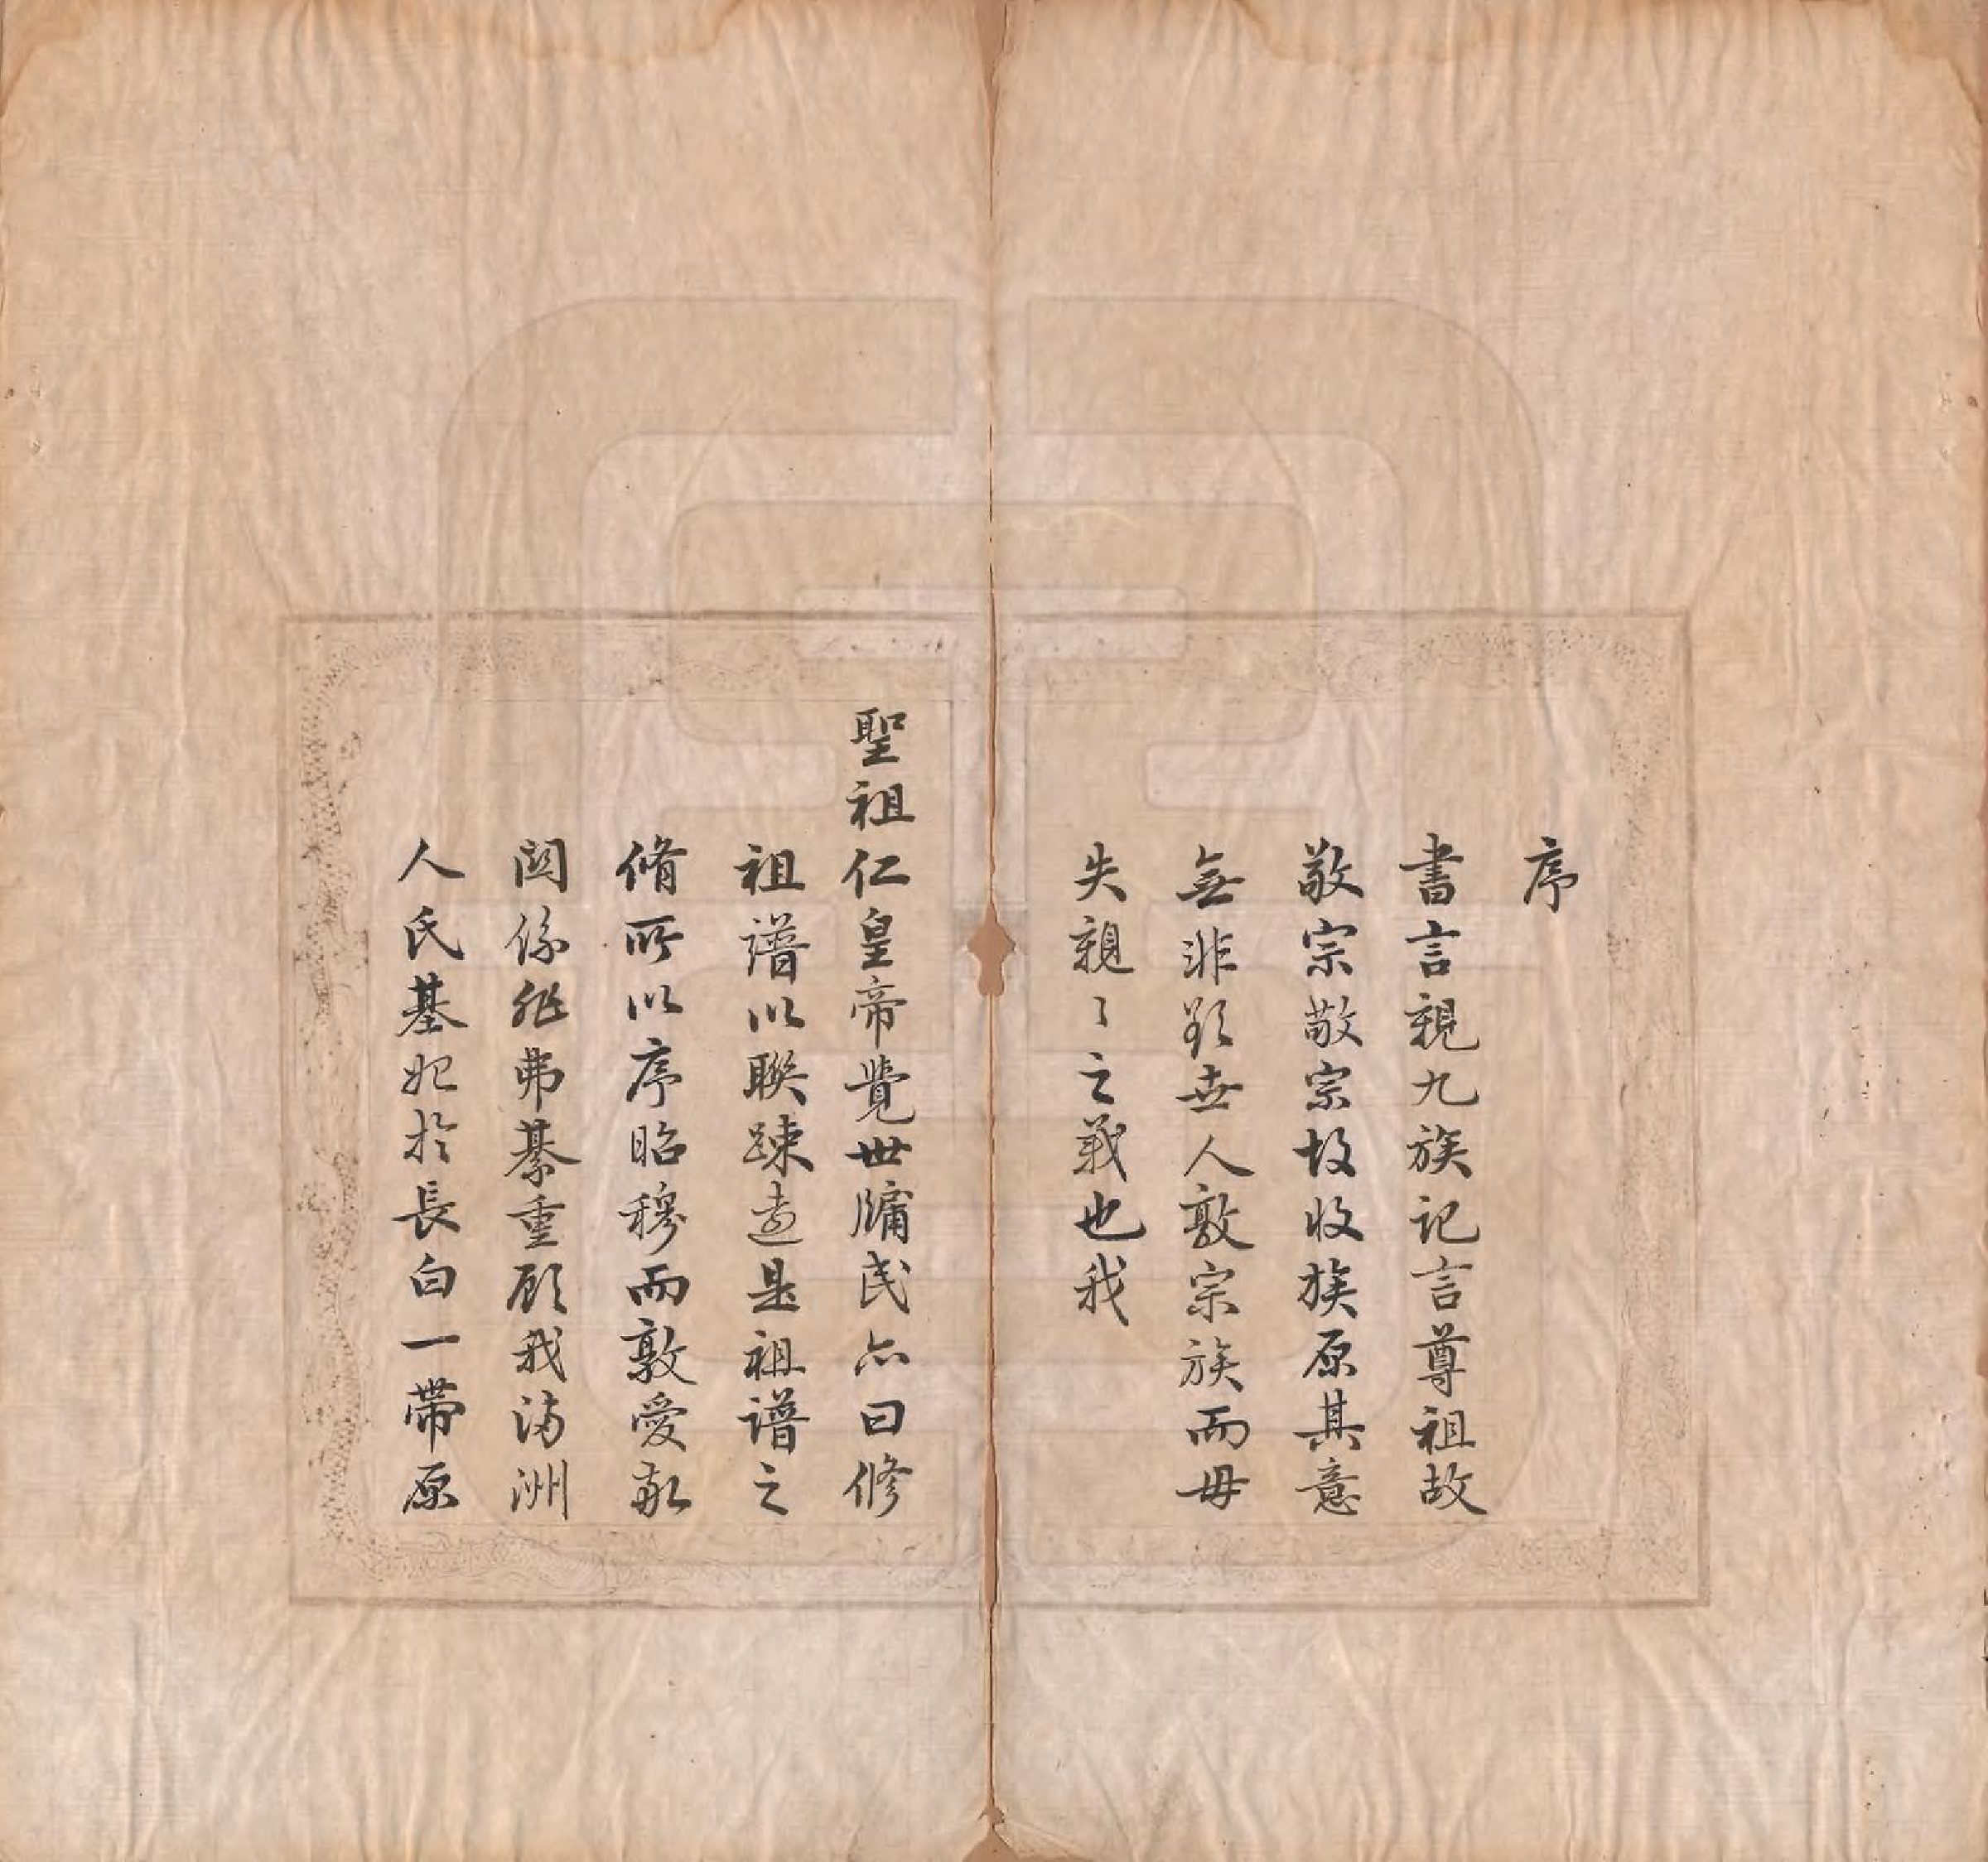 序
書言親九族记言尊祖故
敬宗敬宗故收族原其意
無非欲世人敦宗族而毋
失親〻之義也我
聖祖仁皇帝覺世牖民亦曰修
祖譜以聯踈遠是祖譜之
脩所以序昭穆而敦愛敬
関係弗綦重顧我満洲
人氏基始於長白一帶原